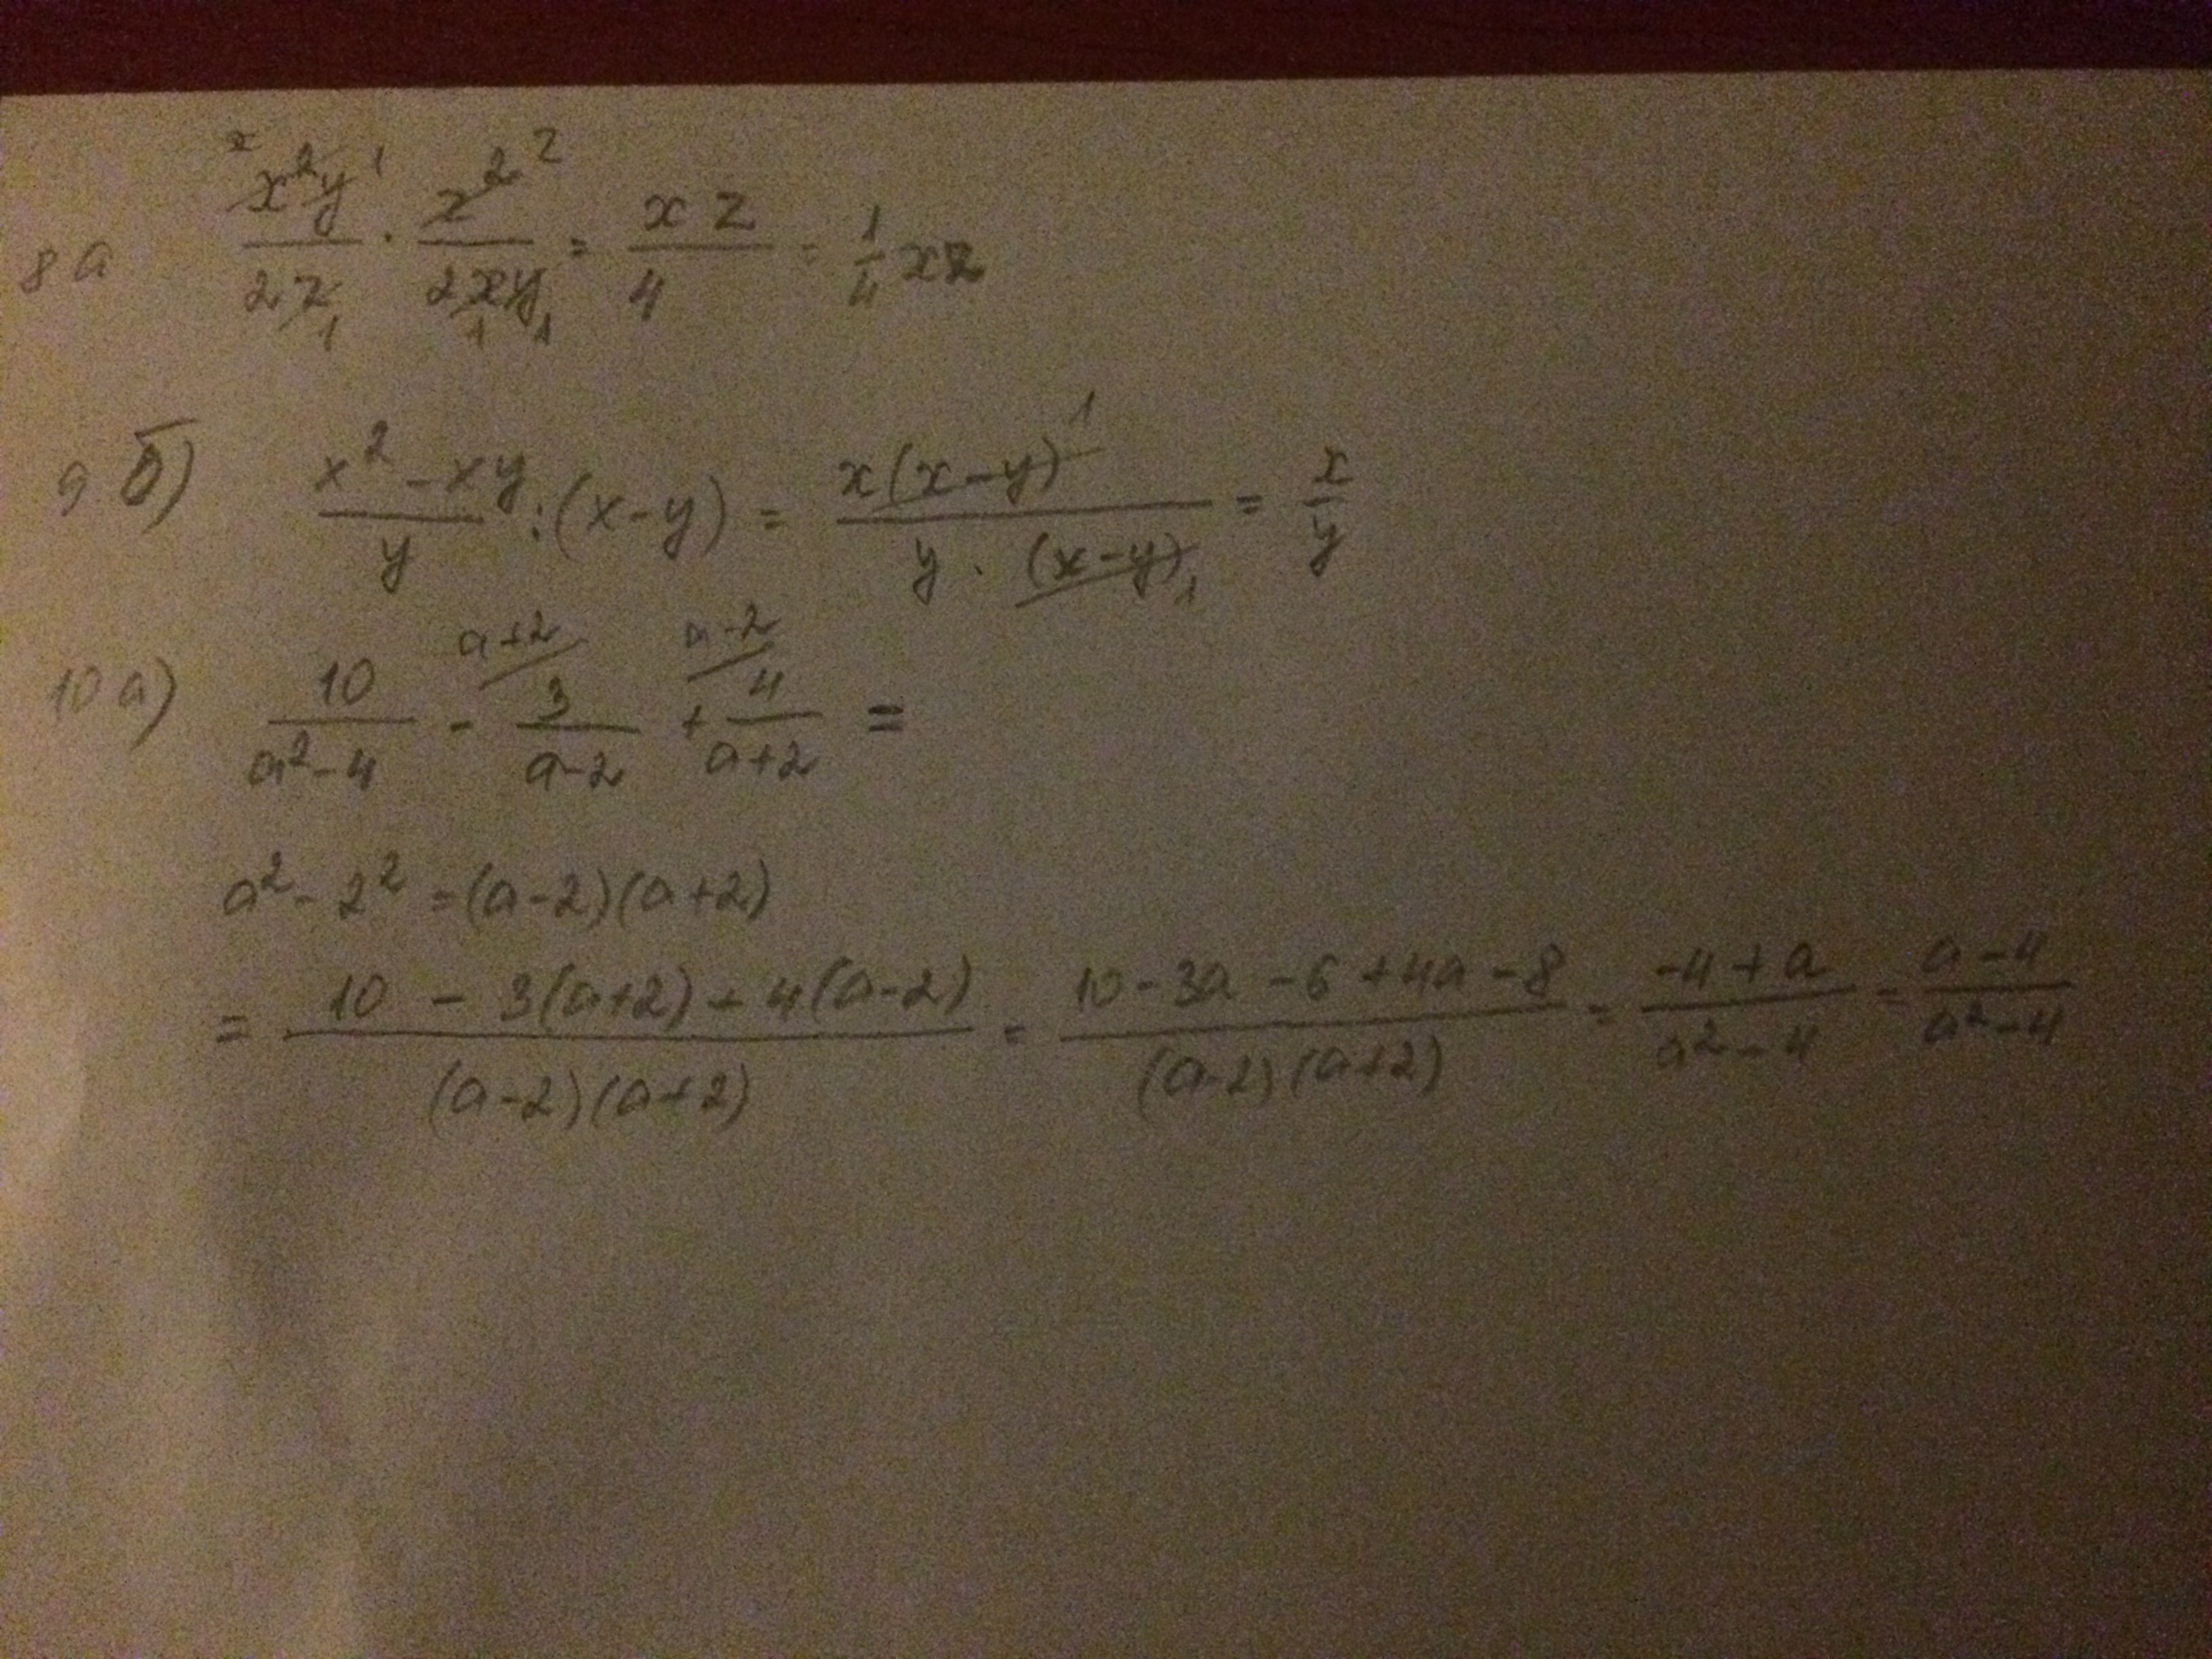 8а x²y/2z · z²/2xy = xz/4 = 1/4 xz
9 б) x² - xy/y : (x - y) = x(x - y)/y · (x - y) = x/y
10 а) 10/a² - 4 - 3/a - 2 + 4/a + 2 =
a² - 2² = (a - 2)(a + 2)
= 10 - 3(a+2) + 4(a-2)/(a-2)(a+2) = 10 - 3a - 6 + 4a - 8/(a-2)(a+2) = -4 + a/a² - 4 = a - 4/a² - 4